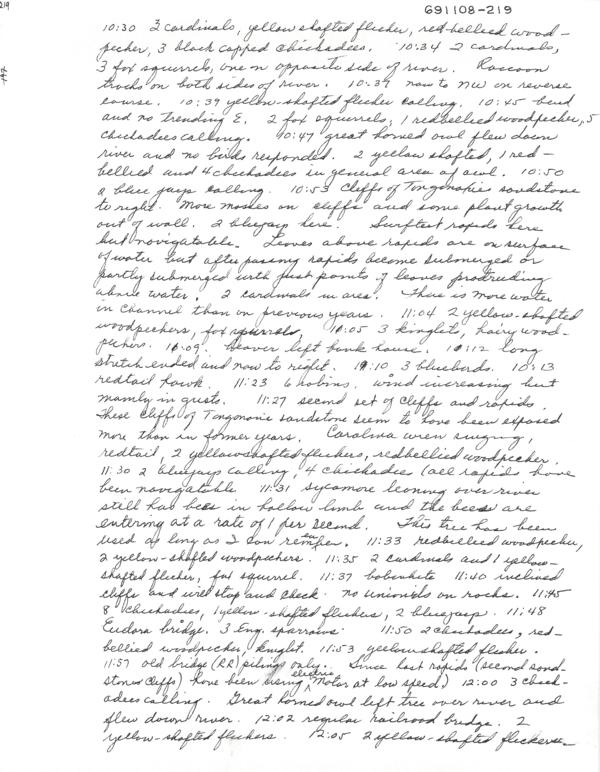 219
691108-219
10:30 3 cardinals, yellow shafted flicker, red-bellied wood-
pecker, 3 black capped chickadees. 10:34 2 cardinals,
3 fox squirrels, one on opposite side of river. Raccoon
tracks on both sides of river. 10:37 now to NW on reverse
course. 10:39 yellow-shafted flicker calling. 10:45 bend
and no trending E. 2 fox squirrels, 1 redbellied woodpecker, 5
chickadees calling. 10:47 great horned owl flew down
river and no birds responded. 2 yellow shafted, 1 red-
bellied and 4 chickadees in general area of owl. 10:50
a blue jays calling. 10:53 Cliffs of Tonganoxie sandstone
to right. More mosses on cliffs and some plant growth
out of wall. 2 bluejays here. Swiftest rapids here
but navigatable. Leaves above rapids are on surface
of water but after passing rapids become submerged or
partly submerged with just points of leaves protruding
above water. 2 cardinals in area. There is more water
in channel than on previous years. 11:04 2 yellow-shafted
woodpeckers, fox squirrels, 11:05 3 kinglets, hairy wood-
peckers. 11:09. beaver left bank house. 11:12 long
stretch ended and now to right. 11:10, 3 bluebirds. 10:13
redtail hawk. 11:23 6 robins. wind increasing but
mainly in gusts. 11:27 second set of cliffs and rapids.
These cliffs of Tonganoxie sandstone seem to have been exposed
more than in former years. Carolina wren singing,
redtail, 2 yellowshafted flickers, redbellied woodpecker.
11:30 2 bluejays calling, 4 chickadees (all rapids have
been navigatable. 11:31 sycamore leaning over river
still has bees in hollow limb and the bees are
entering at a rate of 1 per second. This tree has been
used as long as I can remember. 11:33 redbellied woodpecker,
2 yellow-shafted woodpeckers. 11:35 2 cardinals and 1 yellow-
shafted flicker, fox squirrel. 11:37 bobwhite 11:40 inclined
cliffs and will stop and check. no unionids on rocks. 11:45
8 chickadees, 1 yellow-shafted flickers, 2 bluejays. 11:48
Eudora bridge. 3 Eng. sparrows. 11:50 2 chickadees, red-
bellied woodpecker, knight. 11:53 yellow shafted flicker.
11:57 old bridge (RR) pilings only. Since last rapids (second sand-
stones cliffs) have been using electric motor at low speed.) 12:00 3 chick-
adees calling. Great horned owl left tree over river and
flew down river. 12:02 regular railroad bridge. 2
yellow-shafted flickers. 12:05 2 yellow-shafted flickers